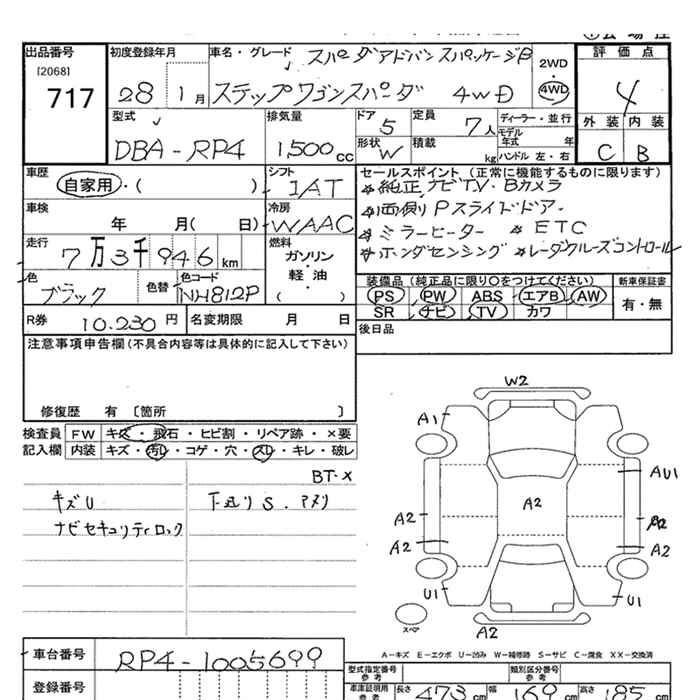 出品番号
[2068]
717
初度登録年月
28 1月
車名・グレード スパーダアドバンスパッケージβ
ステップワゴンスパーダ 4WD
2WD
・
4WD
評価点
4
外装 内装
C B
型式
DBA-RP4
排気量
1500cc
ドア
5
形状
W
定員
7人
積載
kg
ディーラー・並行
モデル年式 年
ハンドル 左・右
車歴
自家用・( )
シフト
IAT
車検
年 月( 日)
冷房
WAAC
走行
7万3千946km
燃料
ガソリン
軽・油
( )
色
ブラック
色替
色コード
NH812P
R券 10.230円
名変期限 月 日
セールスポイント (正常に機能するものに限ります)
☆純正ナビTV・Bカメラ
☆両側Pスライドドアー
☆ミラーヒーター ☆ETC
☆ホンダセンシング ☆レーダクルーズコントロール
装備品 (純正品に限り○をつけてください)
PS PW ABS エアB AW
SR ナビ TV カワ
新車保証書
有・無
後日品
注意事項申告欄(不具合内容等は具体的に記入して下さい)
修復歴 有 〔箇所 〕
検査員記入欄
FW キズ・飛石・ヒビ割・リペア跡・×要
内装 キズ・汚レ・コゲ・穴・スレ・キレ・破レ
BT-×
キズU
下廻りS.アメリ
ナビセキュリティロック
W2
A1
AU1
A2
A2
A2
A2
A2
U1
U1
スペア
A2
A-キズ E-エクボ U-凹み W-補修跡 S-サビ C-腐食 XX-交換済
車台番号 RP4-1005699
登録番号
型式指定番号
参考
類別区分番号
参考
車庫証明用
参考
長さ 473cm 幅 169cm 高さ 185cm